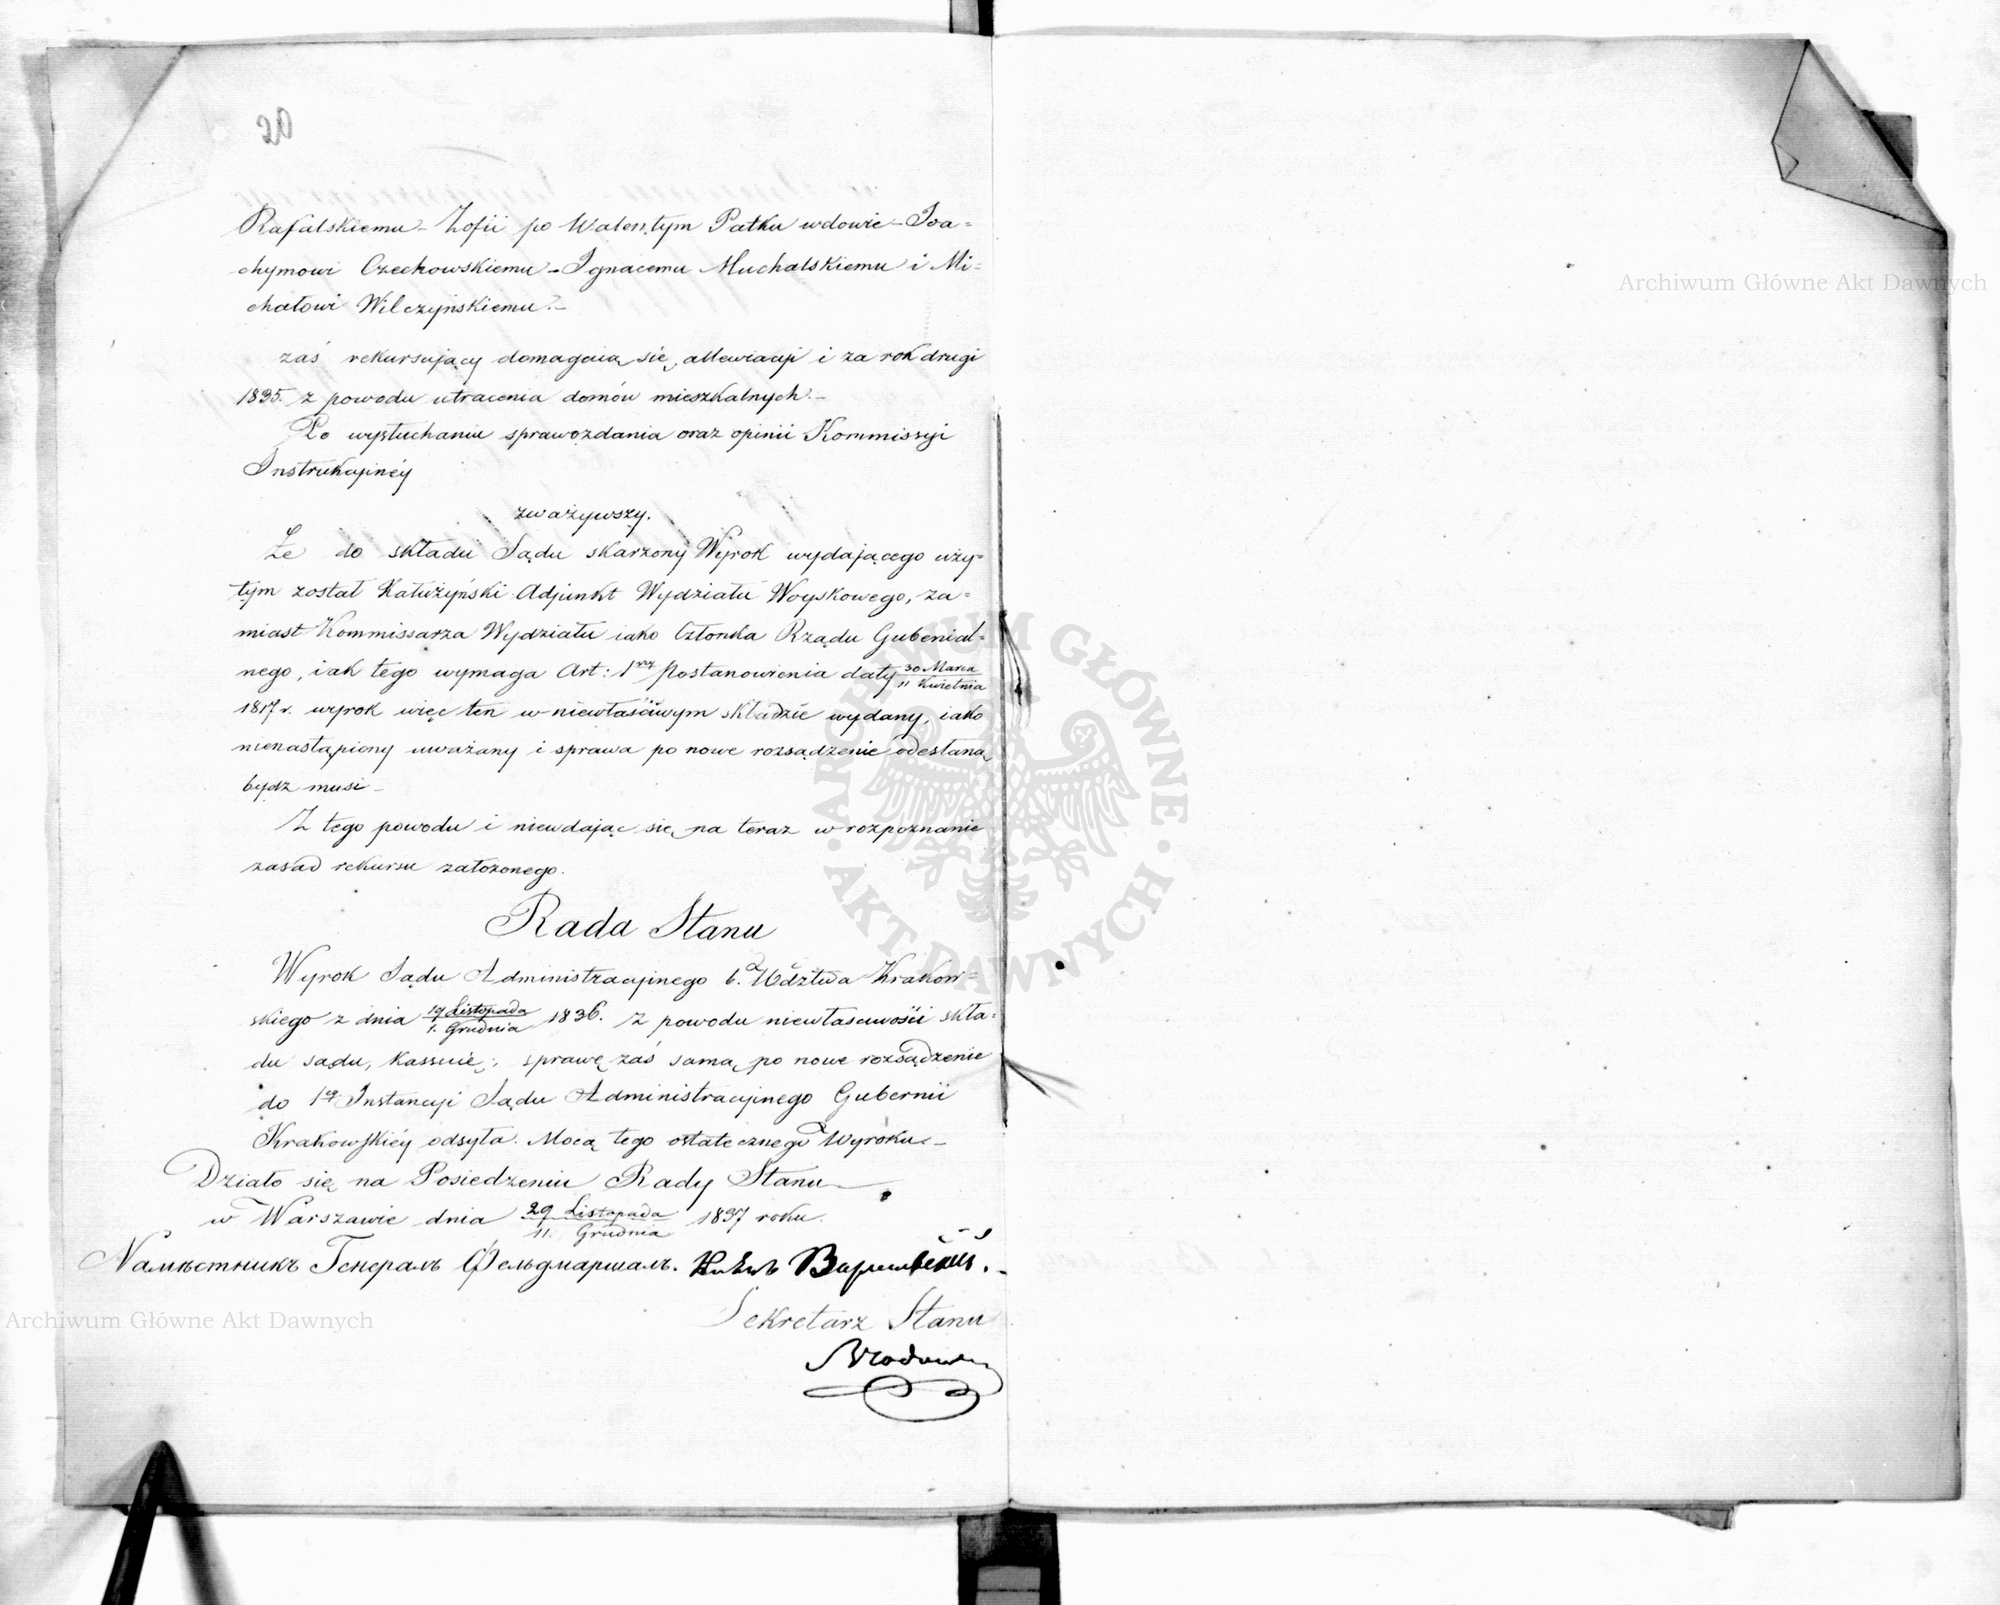 20
Rafalskiemu - Zofii po Walentym Patku wdowie - Joa=
chymowi Czechowskiemu - Ignacemu Muchalskiemu i Mi=
chałowi Wilczyńskiemu.-
zaś rekursujący domagaią się allewiacji i za rok drugi
1835. z powodu utracenia domów mieszkalnych.-
Po wysłuchaniu sprawozdania oraz opinii Kommissyi
Instrukcyinéy
zważywszy.
Że do składu Sądu skarżony Wyrok wydającego uży=
tym został Kałużyński Adjunkt Wydziału Woyskowego, za=
miast Kommissarza Wydziału iako Członka Rządu Gubernial=
nego, iak tego wymaga Art: 1szy Postanowienia daty 30 Marca / 11 Kwietnia
1817 r. wyrok więc ten w niewłaściwym składzie wydany, iako
nienastąpiony uważany i sprawa po nowe rozsądzenie odesłaną
bydz musi -
Z tego powodu i niewdając się na teraz w rozpoznanie
zasad rekursu założonego.
Rada Stanu
Wyrok Sądu Administracyjnego b. Wdztwa Krakow=
skiego z dnia 19 Listopada / 1. Grudnia 1836. z powodu niewłaściwości skła=
du sądu, kassuie; sprawę zaś samą po nowe rozsądzenie
do 1ej Instancyi Sądu Administracyjnego Gubernii
Krakowskiéy odsyła. Mocą tego ostatecznego Wyroku.-
Działo się na Posiedzeniu Rady Stanu
w Warszawie dnia 29 Listopada / 11. Grudnia 1837 roku.
Намѣстникъ Генералъ Фельдмаршалъ. Князь Варшавскій.
Sekretarz Stanu
Archiwum Główne Akt Dawnych
Archiwum Główne Akt Dawnych
ARCHIWUM GŁÓWNE · AKT DAWNYCH ·